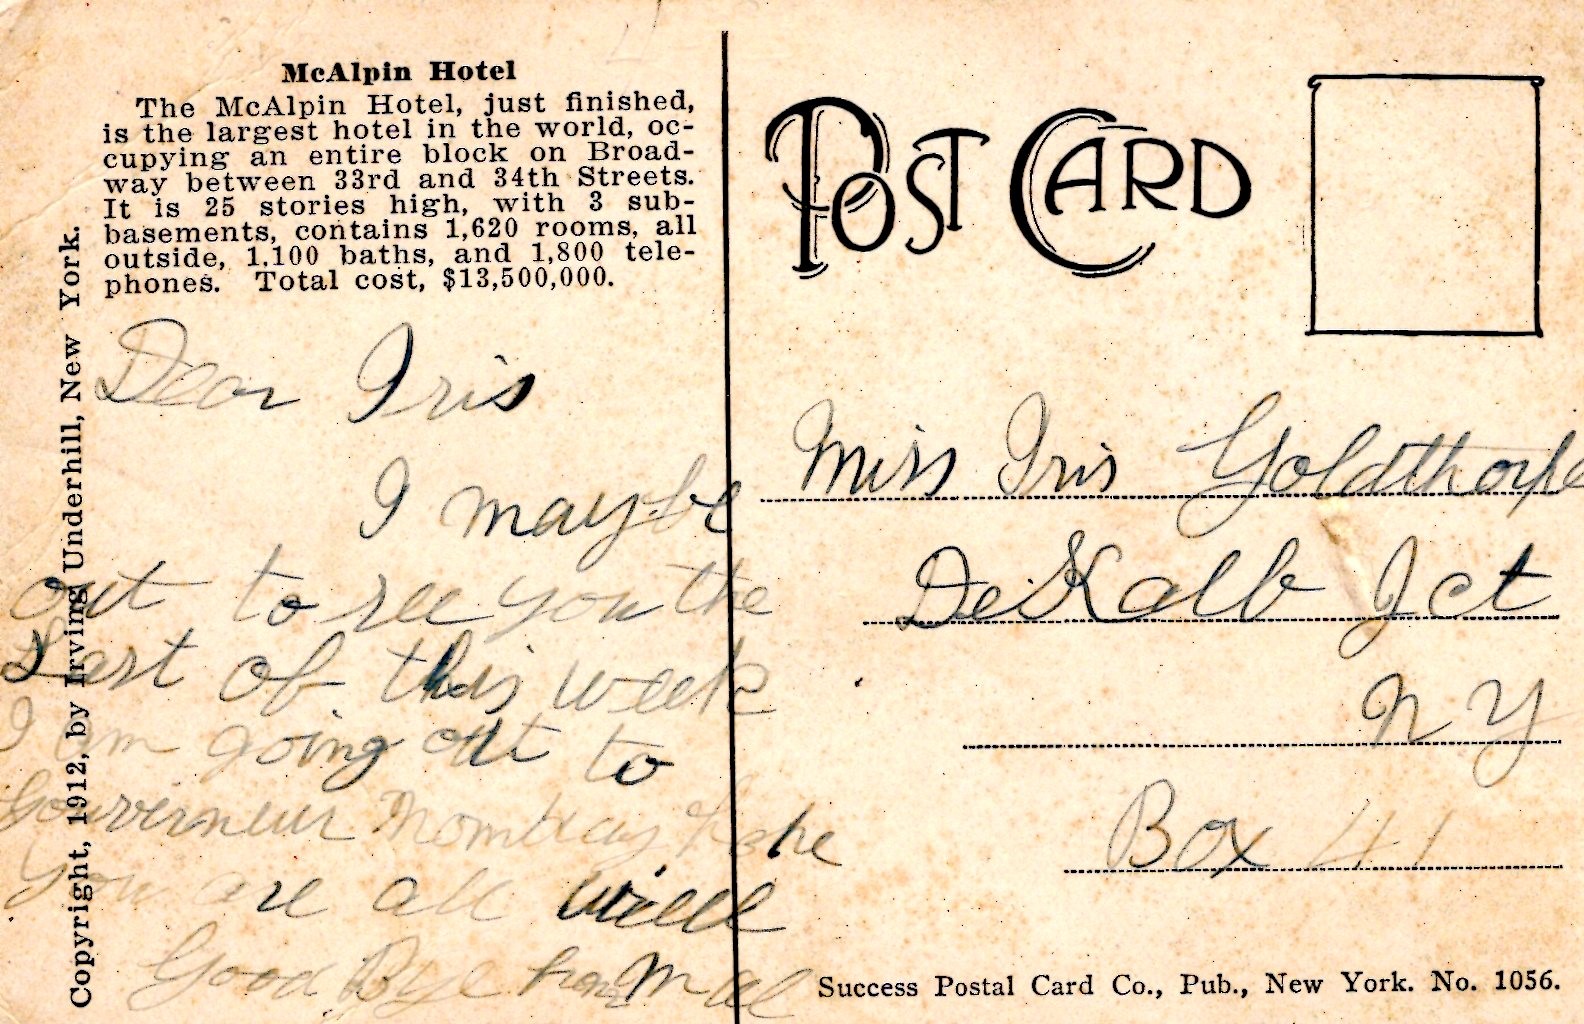 McAlpin Hotel
The McAlpin Hotel, just finished,
is the largest hotel in the world, oc-
cupying an entire block on Broad-
way between 33rd and 34th Streets.
It is 25 stories high, with 3 sub-
basements, contains 1,620 rooms, all
outside, 1,100 baths, and 1,800 tele-
phones. Total cost, $13,500,000.
Copyright, 1912, by Irving Underhill, New York.
Dear Iris
I maybe
out to see you the
Last of this week
I am going out to
Gouverneur
You are all well
Good Bye from
POST CARD
Miss Iris Goldthorpe
DeKalb Jct
N Y
Box 41
Success Postal Card Co., Pub., New York. No. 1056.